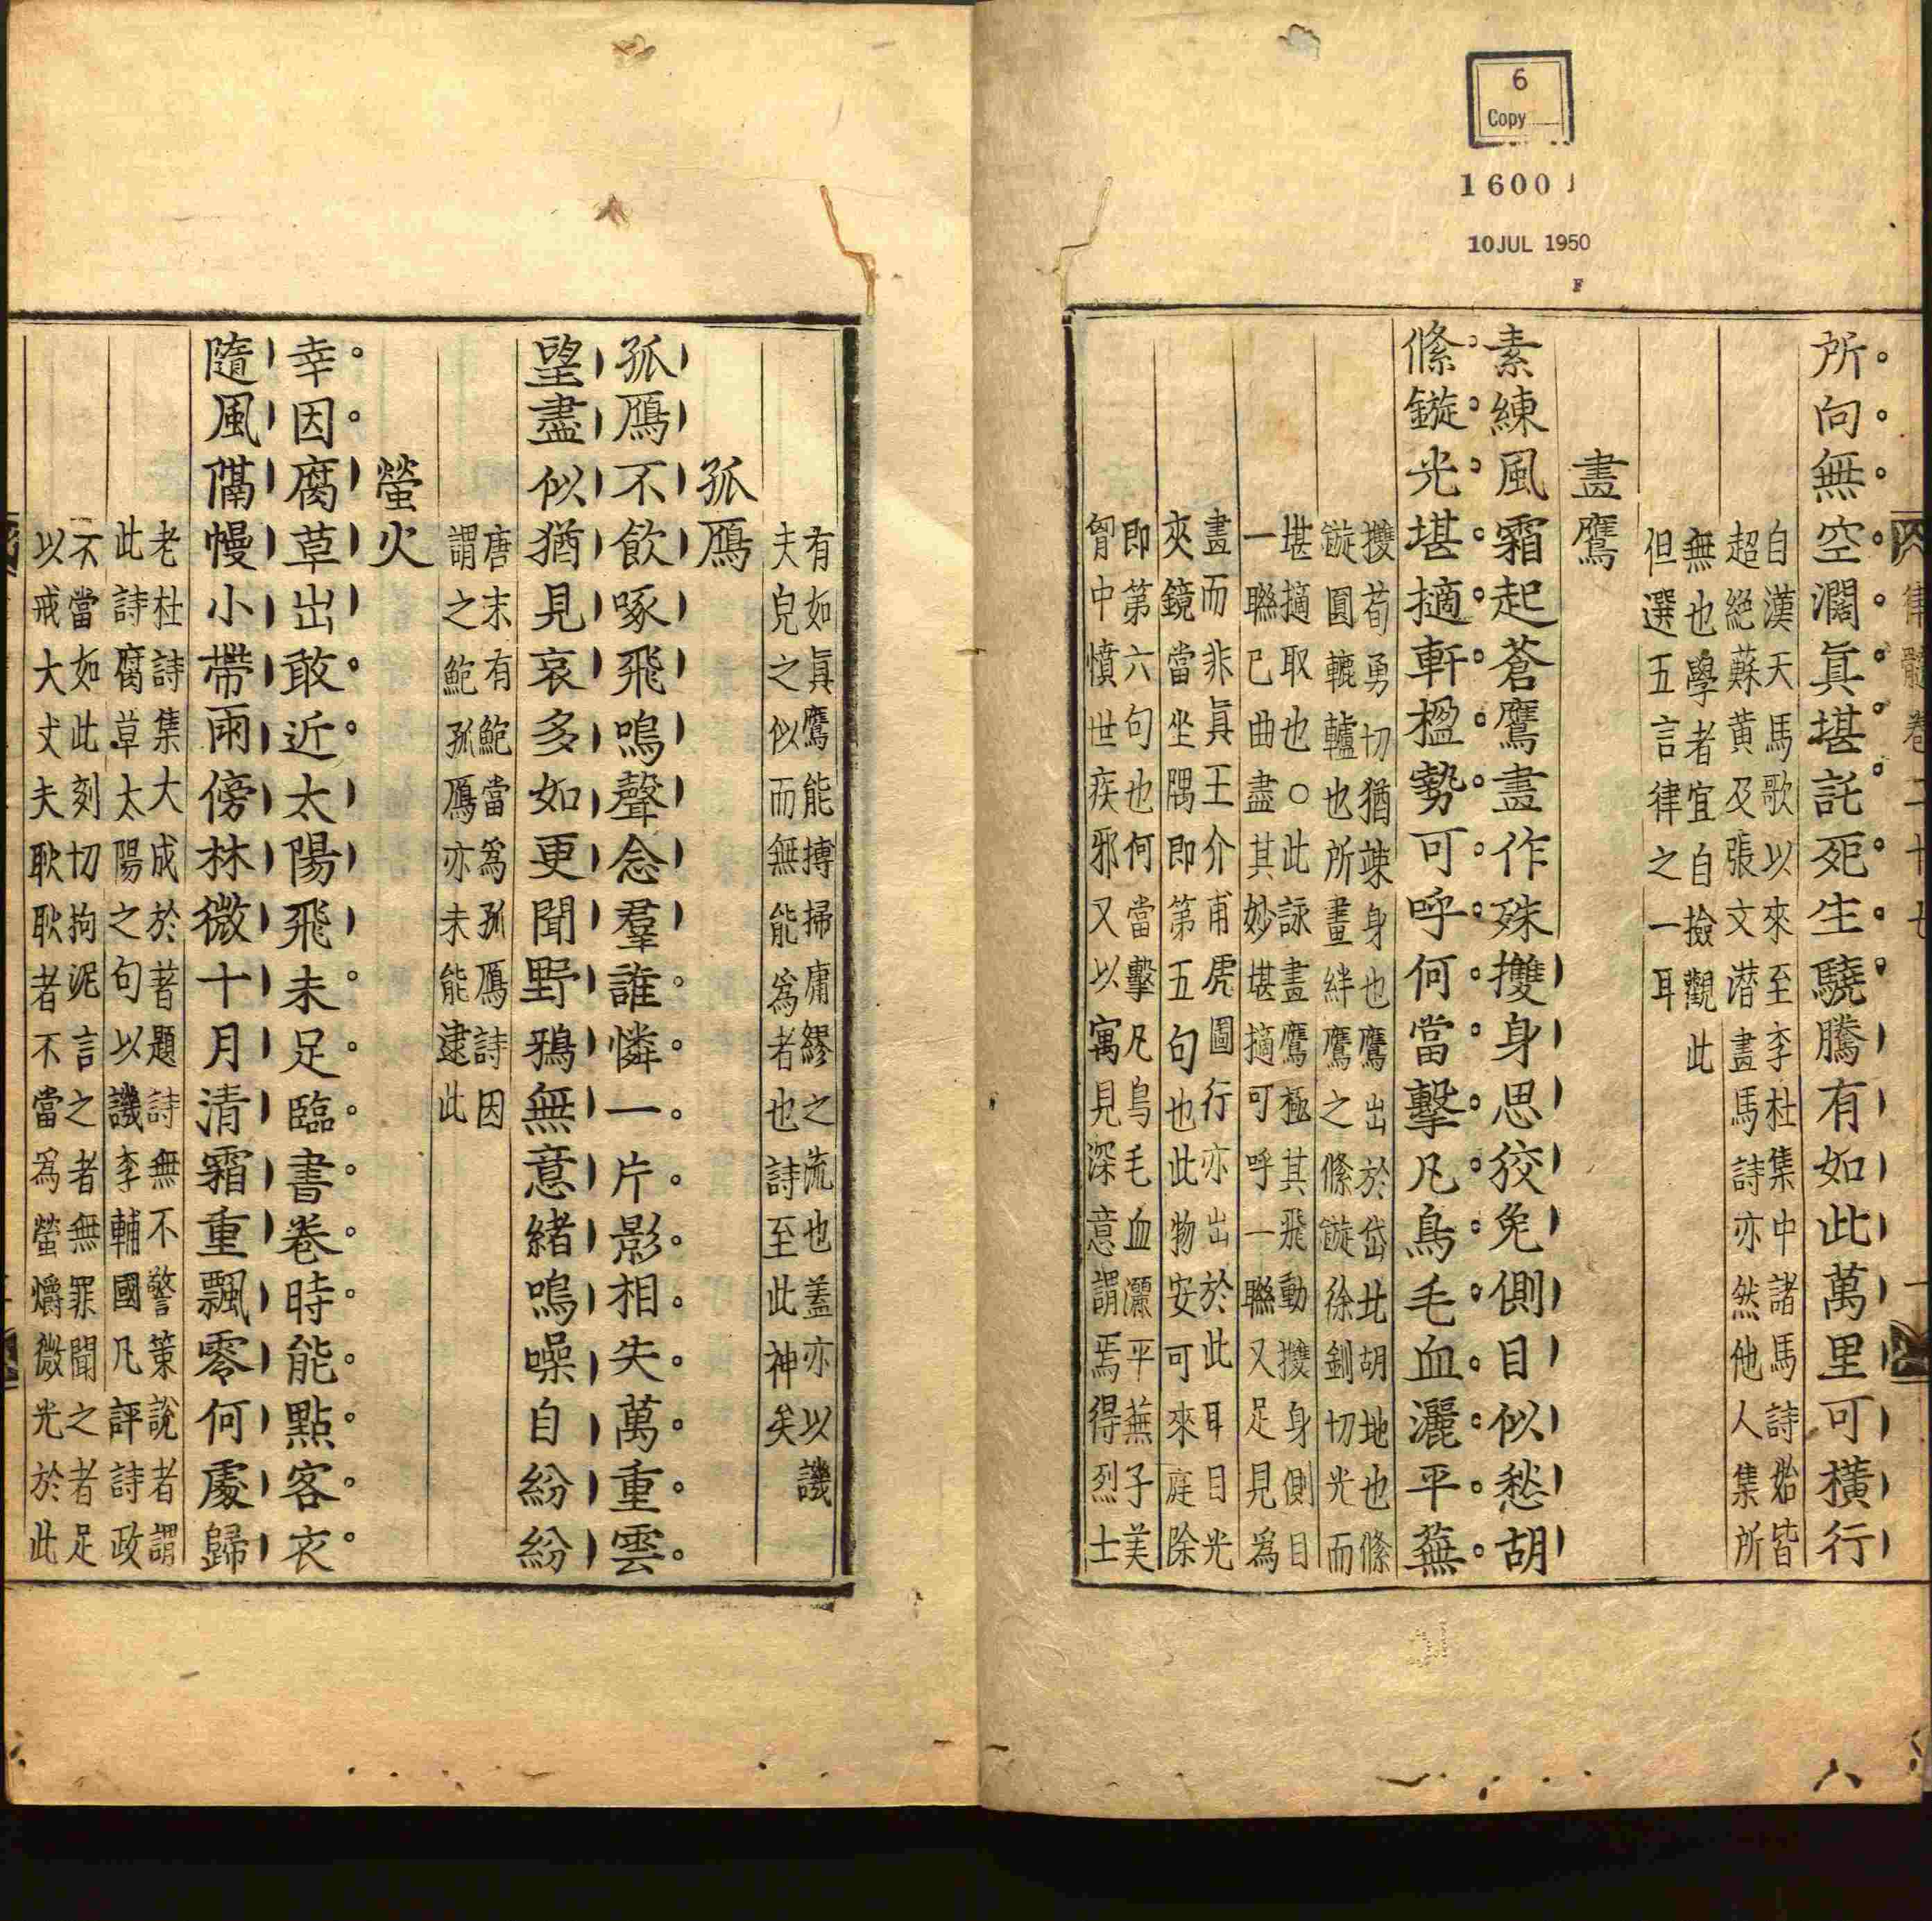 6
Copy
1600
10 JUL 1950
F
律髓卷二十七
所向無空濶眞堪託死生驍騰有如此萬里可橫行
自漢天馬歌以來至李杜集中諸馬詩始皆
超絶蘇黄及張文潜畫馬詩亦然他人集所
無也學者宜自撿觀此
但選五言律之一耳
畫鷹
素練風霜起蒼鷹畫作殊㩳身思狡兔側目似愁胡
絛鏇光堪擿軒楹勢可呼何當擊凡鳥毛血灑平蕪
㩳荀勇切猶竦身也鷹出於岱北胡地也絛
鏇圓轆轤也所畫絆鷹之絛鏇徐釧切光而
堪擿取也○此詠畫鷹極其飛動㩳身側目
一聯已曲盡其妙堪擿可呼一聯又足見爲
畫而非眞王介甫虎圖行亦出於此耳目光
夾鏡當坐隅即第五句也此物安可來庭除
即第六句也何當擊凡鳥毛血灑平蕪子美
胷中憤世疾邪又以寓見深意謂焉得烈士
有如眞鷹能搏掃庸繆之流也蓋亦以譏
夫兒之似而無能爲者也詩至此神矣
孤鴈
孤鴈不飲啄飛鳴聲念羣誰憐一片影相失萬重雲
望盡似猶見哀多如更聞野鴉無意緖鳴噪自紛紛
唐末有鮑當爲孤鴈詩因
謂之鮑孤鴈亦未能逮此
螢火
幸因腐草出敢近太陽飛未足臨書卷時能點客衣
隨風隔幔小帶雨傍林微十月清霜重飄零何處歸
老杜詩集大成於著題詩無不警策說者謂
此詩腐草太陽之句以譏李輔國凡評詩政
不當如此刻切拘泥言之者無罪聞之者足
以戒大丈夫耿耿者不當爲螢爝微光於此